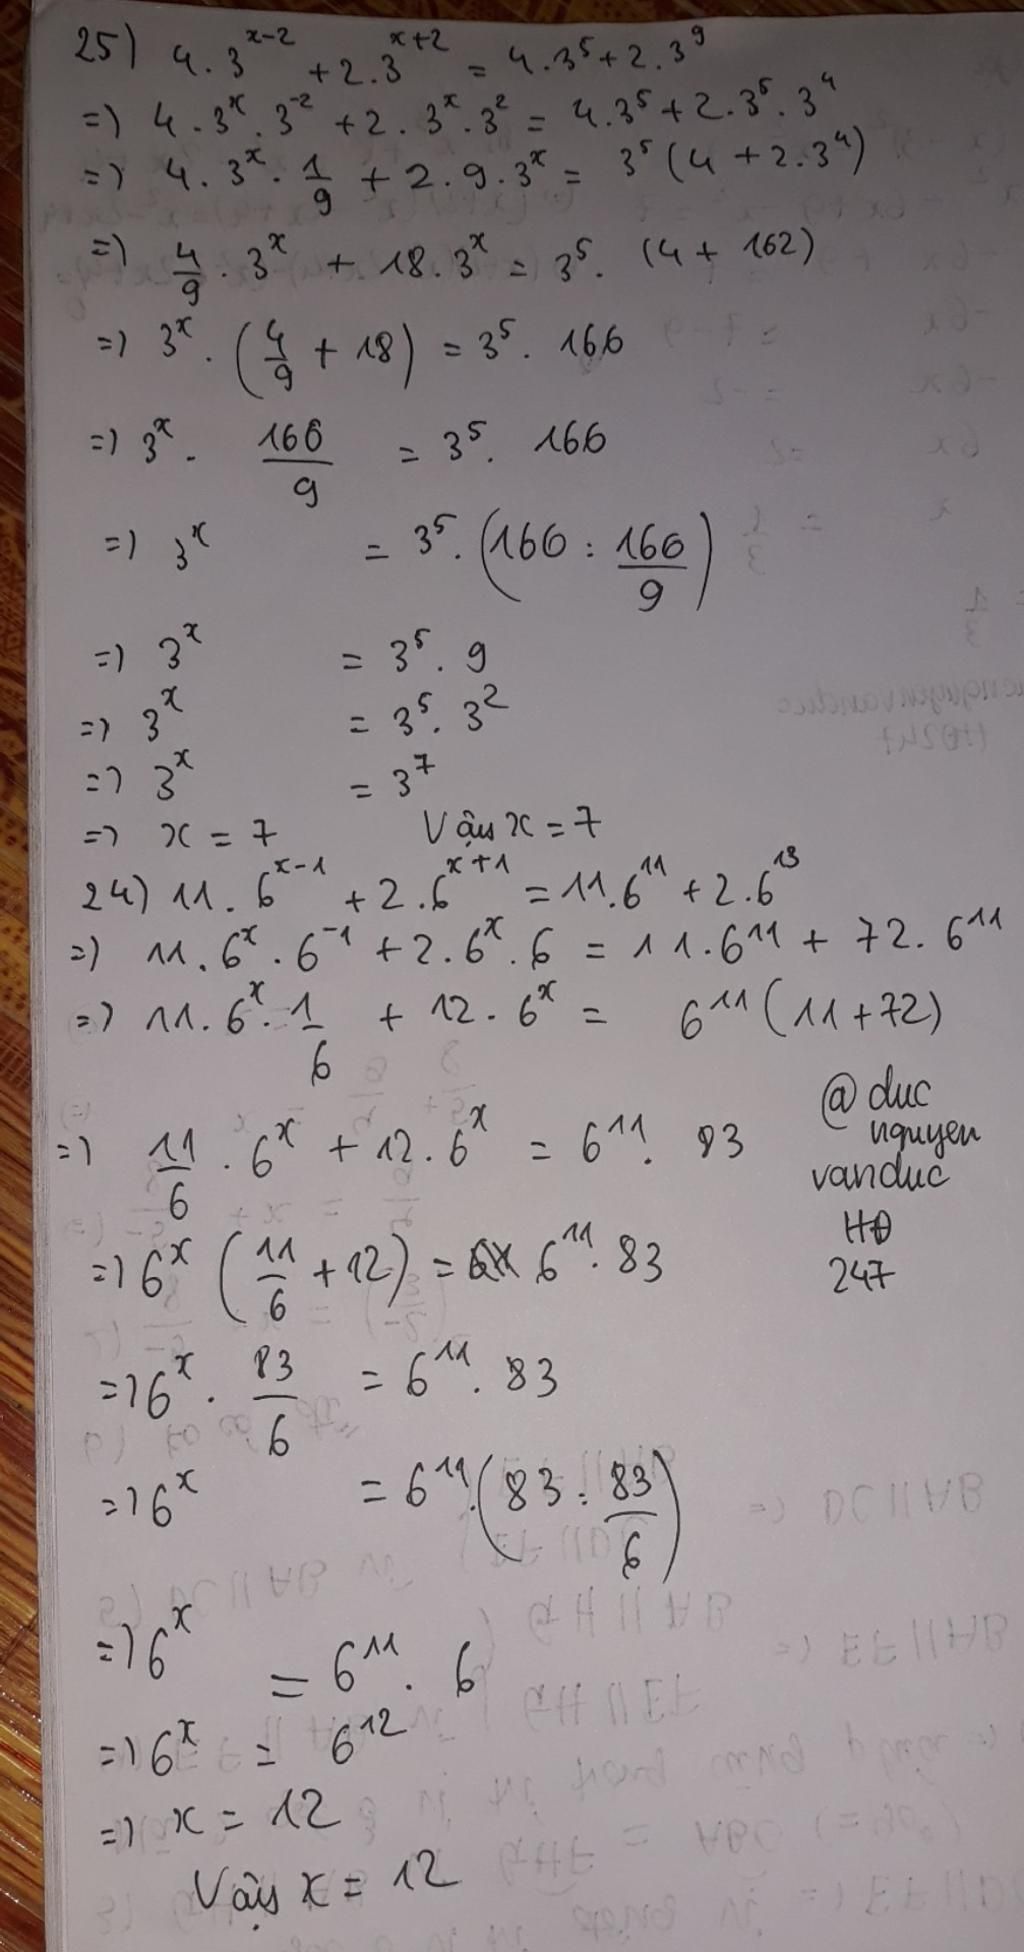 25) 4.3^{x-2} + 2.3^{x+2} = 4.3^5 + 2.3^9
=) 4.3^x.3^{-2} + 2.3^x.3^2 = 4.3^5 + 2.3^5.3^4
=) 4.3^x.1/9 + 2.9.3^x = 3^5(4 + 2.3^4)
=) 4/9.3^x + 18.3^x = 3^5.(4 + 162)
=) 3^x.(4/9 + 18) = 3^5.166
=) 3^x.166/9 = 3^5.166
=) 3^x = 3^5.(166 : 166/9)
=) 3^x = 3^5.9
=) 3^x = 3^5.3^2
=) 3^x = 3^7
=) x = 7 Vậy x = 7
24) 11.6^{x-1} + 2.6^{x+1} = 11.6^{11} + 2.6^{13}
=) 11.6^x.6^{-1} + 2.6^x.6 = 11.6^{11} + 72.6^{11}
=) 11.6^x.1/6 + 12.6^x = 6^{11}(11+72)
=) 11/6.6^x + 12.6^x = 6^{11}.83
=) 6^x(11/6 + 12) = 6^{11}.83
=) 6^x.83/6 = 6^{11}.83
=) 6^x = 6^{11}.(83 : 83/6)
=) 6^x = 6^{11}.6
=) 6^x = 6^{12}
=) x = 12
Vậy x = 12
@duc
nguyen
vanduc
HD
247